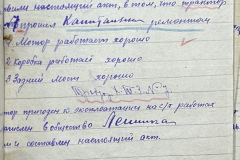 вили настоящий акт, в том, что трактор
прошел Капитальн ремонтом
1. Мотор работает хорошо
2 Коробка работает хорошо
3 Задний Мост хорошо
тор пригоден к эксплоатации на с/х работах
в общество Ленина
и составлен настоящий акт.